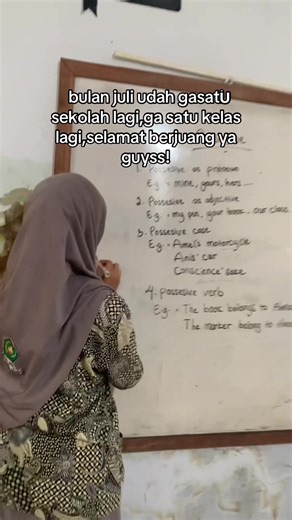 bulan juli udah gasatu
sekolah lagi,ga satu kelas
lagi,selamat berjuang ya
guyss!
1. Possesive as pronoun
Eg. = mine, yours, hers ...
2. Possesive as adjective
Eg. = my pen, your book, our class
3. Possesive case
Eg: = Amel's motorcycle
Ania' car
Conscience' sake
4. Possesive verb
Eg. = The book belongs to
The marker belong to